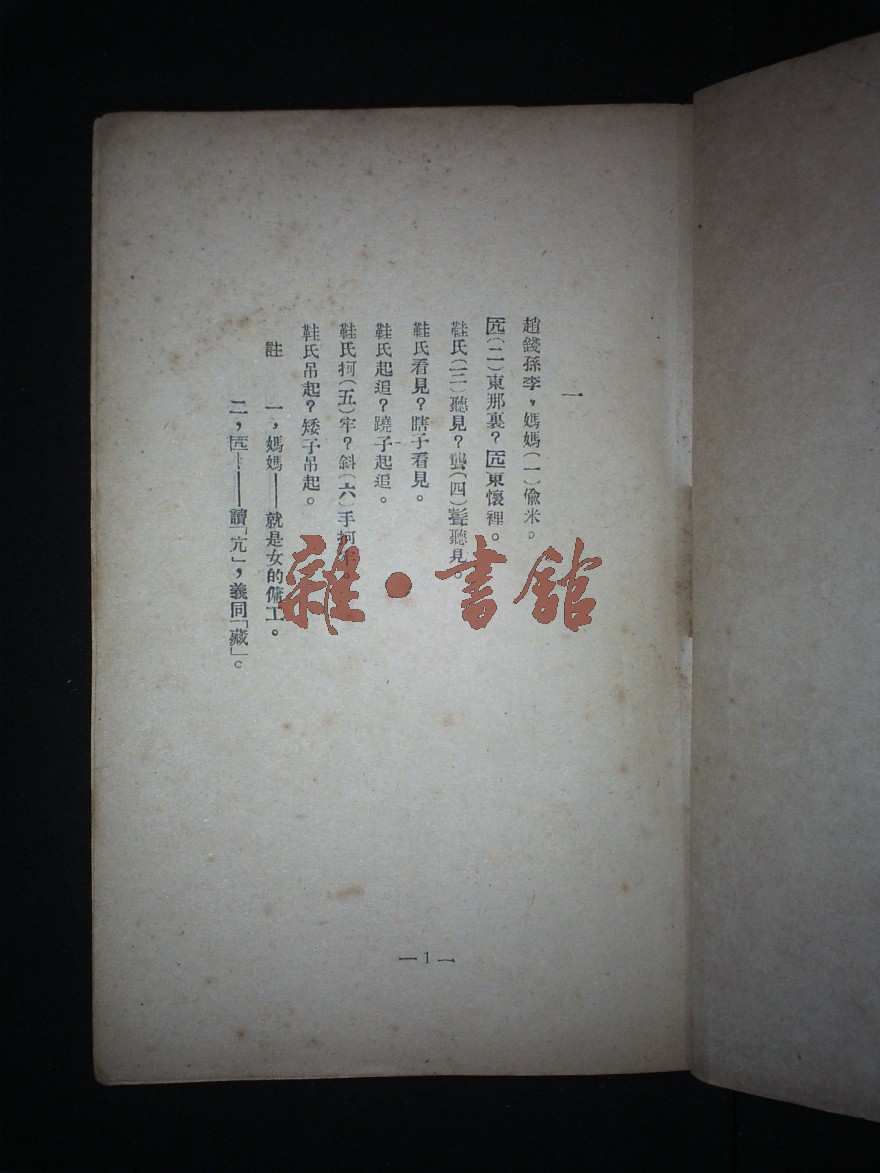 一
趙錢孫李，媽媽（一）偷米。
匟（二）東那裏？匟東懷裡。
鞋氏（三）聽見？聾（四）髼聽見。
鞋氏看見？瞎子看見。
鞋氏起追？蹺子起追。
鞋氏抲（五）牢？斜（六）手抲
鞋氏吊起？矮子吊起。
註 一，媽媽——就是女的傭工。
二，匟——讀「亢」，義同「藏」。
雜·書館
—1—